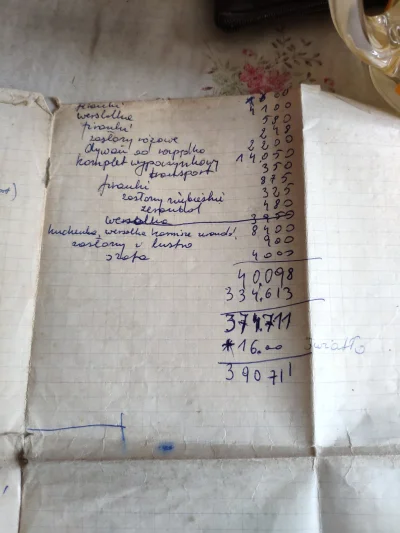 firanki 1800
wersalka 4100
firanki 580
zasłony różowe 248
dywan do 2200
komplet wypoczynkowy 14,050
transport 350
firanki 875
zasłony niebieskie 325
480
wersalka 3950
kuchenka, wersalka 8400
zasłony i lustro 900
szafa 4000
40,098
334,613
374,711
*16.00 Światło
390711